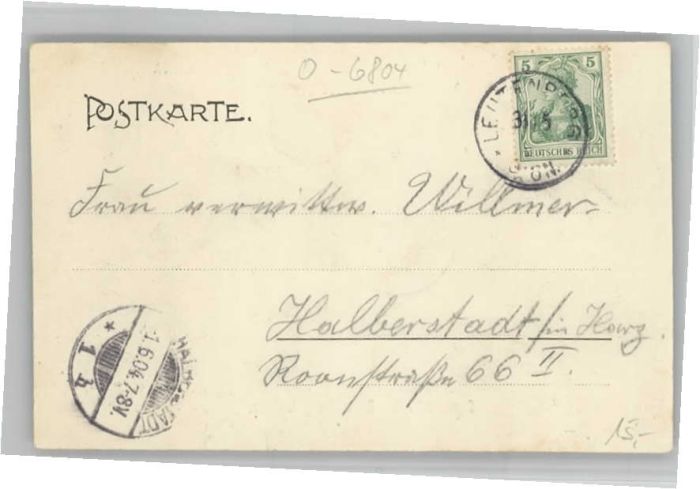 O-6804
POSTKARTE.
5 5
LEUTENBERG
31 5
DEUTSCHES REICH
Frau verwittw. Willmer
Halberstadt/in Harz.
Roonstraße 66 II.
HALBERSTADT
1.6.04.7-8V.
* 1 b
15,-